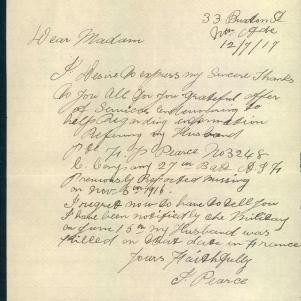 33 Burton St
12/7/17
Dear Madam
I Desire to express my Sincere Thanks
to you All For your grateful offer
of Services endeavouring to
help Regarding information
Refering my Husband
Pte F. J. Pearce No 3248
C. Company 27th Batt A.I.F
Previously Reported missing
on Nov 5th 1916.
I regret now to have to tell you
I have been notified by the Military
on June 15th my Husband was
Killed on that date in France
Yours Faithfully
F. Pearce